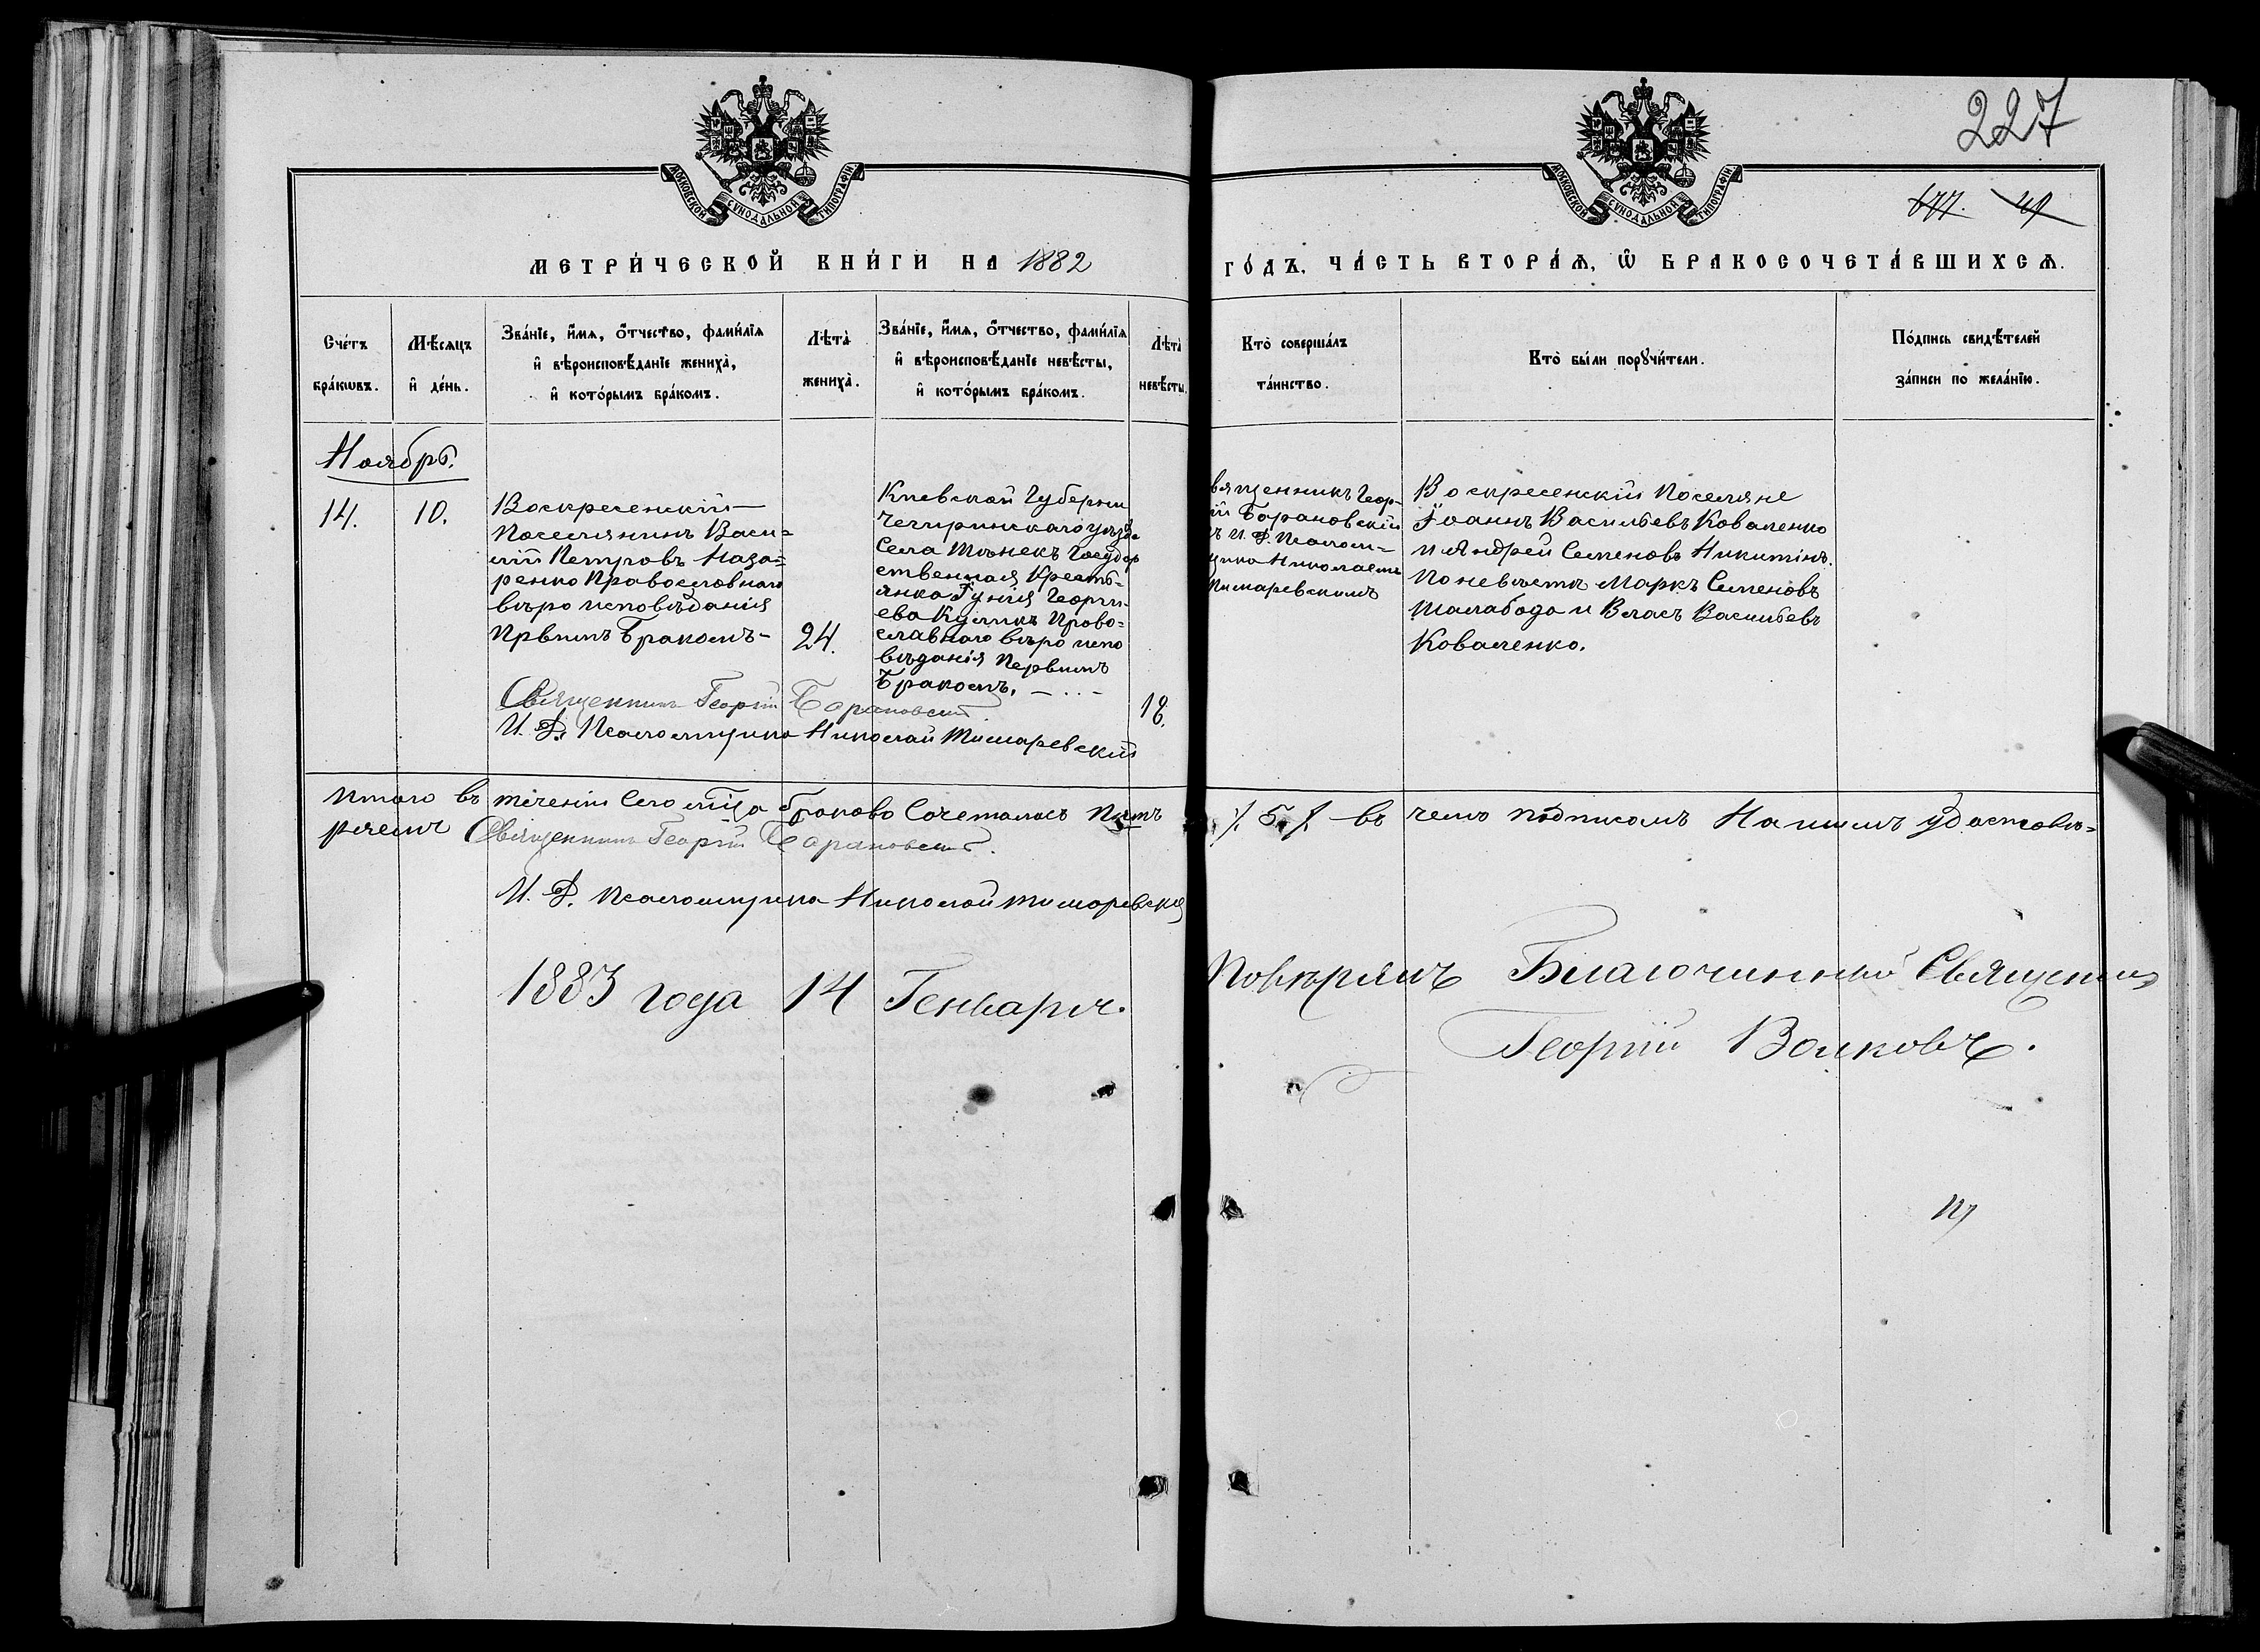 227
МОСКОВСКОЙ СѴНОДАЛЬНОЙ ТИПОГРАФІИ
МОСКОВСКОЙ СѴНОДАЛЬНОЙ ТИПОГРАФІИ
677. 49
МЕТРИ́ЧЕСКОЙ КНИ́ГИ НА 1882
ГО́ДЪ, ЧА́СТЬ ВТОРА́Ѧ, Ѡ҆ БРАКОСОЧЕТА́ВШИХСѦ.
Сче́тъ
бра́кѡвъ.
Мѣ́сѧцъ
и҆ де́нь.
Зва́нїе, и҆́мѧ, ѻ҆́тчество, фамѝлїѧ
и҆ вѣроисповѣ́данїе жениха̀,
и҆ кото́рымъ бра́комъ.
Лѣта̀
жениха̀.
Зва́нїе, и҆́мѧ, ѻ҆́тчество, фамѝлїѧ
и҆ вѣроисповѣ́данїе невѣ́сты,
и҆ кото́рымъ бра́комъ.
Лѣта̀
невѣ́сты.
Кто̀ соверша́лъ
та́инство.
Кто̀ бы́ли порꙋчи́тели.
По́дпись свидѣ́телей
за́писи по жела́нїю.
Ноябрь.
14.
10.
Воскресенскій
Поселянинъ Васи=
лій Петровъ Наза=
ренко Православнаго
вѣро исповѣданія
Првымъ Бракомъ-
24.
Кіевской Губерніи
Чегиринскаго уѣзда
Села Тѣнекъ Госудор
ственная Кресть=
янка Іунія Георгі-
ева Куликъ Право=
славнаго вѣро испо
вѣданія Первымъ
Бракомъ.
18.
вященникъ Геор-
ій Барановскій
ъ И. Ф. Псалом=
щика Николаемъ
Тимаревскимъ
Воскресенскіи Поселяне
Іоаннъ Васильевъ Коваленко
и Андрей Семеновъ Никитінъ.
По невѣстѣ Маркъ Семеновъ
Шалабода и Власъ Васильевъ
Коваленко.
Священникъ Георгій Барановскій.
И. Ф. Псаломщика Николай Тимаревскій
Итого въ теченіи Сего мѣца браково Сочеталось Пять
./. 5. /. въ чемъ подписомъ Нашимъ удостовѣ=
ряемъ Священникъ Георгій Барановскій.
И. Ф. Псаломщика Николай Тимаревскій
1883 года 14 Генваря. Повѣрялъ Благочинный Священникъ
Георгій Волковъ.